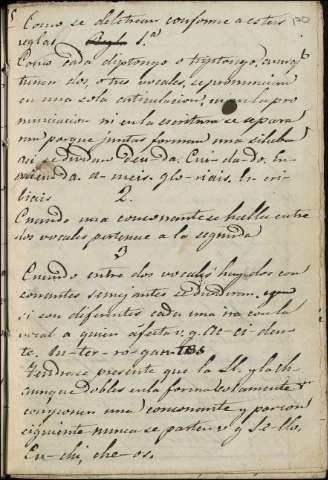 Como se deletrean conforme a estas
reglas. Regla 1.ª
Como cada diptongo o triptongo, aunq
tienen dos, o tres vocales, se pronuncian
en una sola articulacion, ni en la pro
nunciacion ni en la escritura se separa
ran porque juntas forman una silaba
asi se dividen Deu-da. Cui-da-do. En
mienda. a-meis. glo-riais. In
2.
Cuando una consonante se halla entre
dos vocales pertenece a la segunda
3
Cuando entre dos vocales hay dos con
sonantes semejantes se dividiran.
si son diferentes cada una va con la
vocal a quien afecta v. g. Ac-ci-den-
te. In-ter-ro-gan-tes
Tendrase presente que la ll. y la ch
aunque dobles en la forma solamente
componen una consonante y por con
siguiente nunca se parten v g Se-llo.
Cu-chi, che-os.